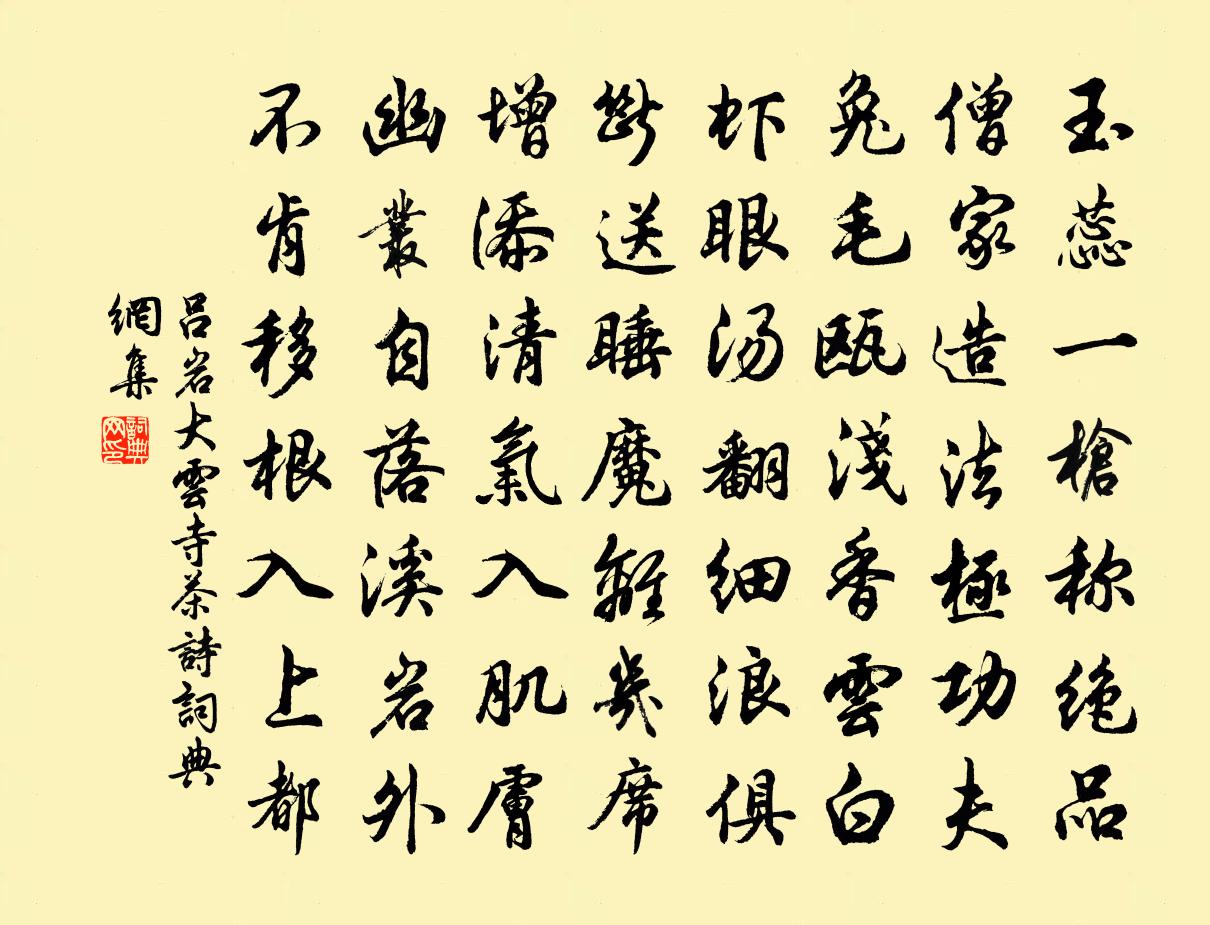 玉蕊一槍称绝品
僧家造法極功夫
兔毛瓯淺香雲白
虾眼汤翻细浪俱
斷送睡魔離幾席
增添清氣入肌膚
幽叢自落溪岩外
不肯移根入上都
吕岩大雲寺茶詩詞典
網集
詞典
网印